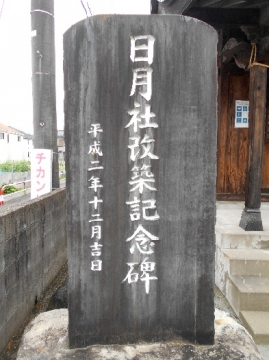 日月社改築記念碑
平成二年十二月吉日
チカン